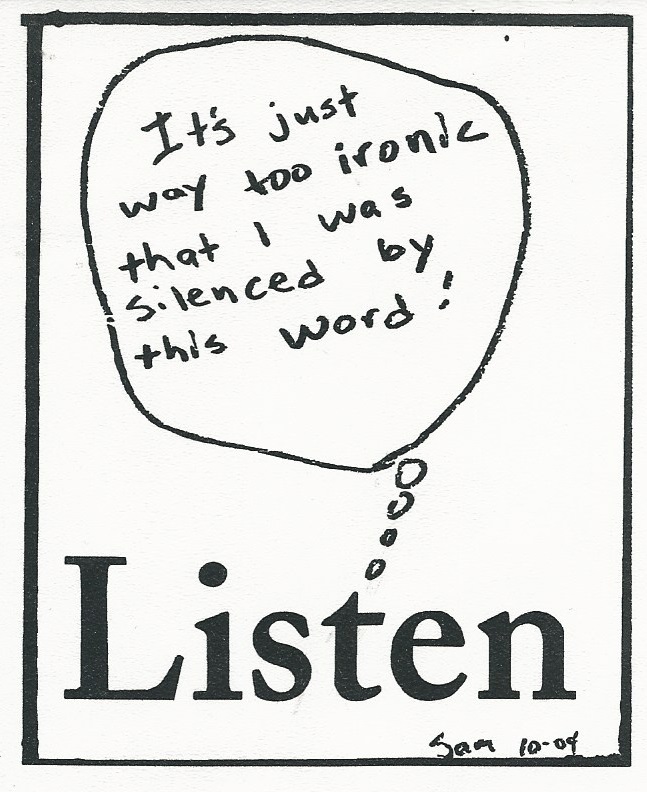 It's just
way too ironic
that I was
silenced by
this word!
Listen
Sam 10-04